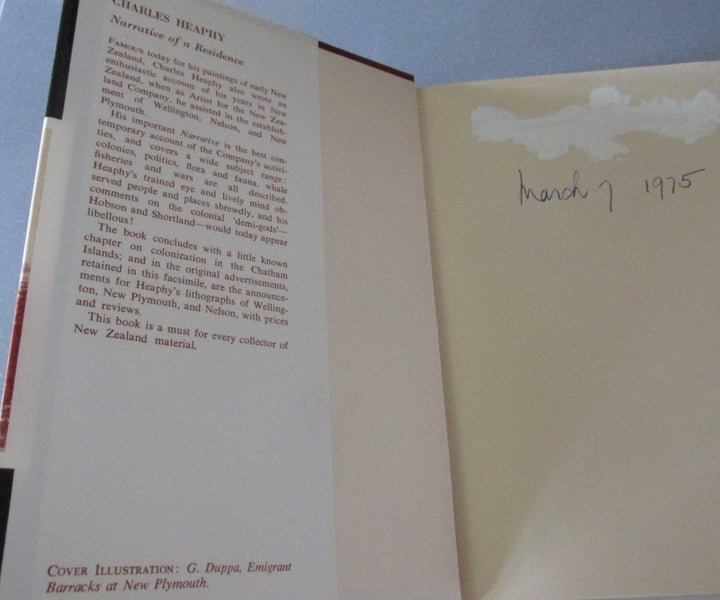 CHARLES HEAPHY
Narrative of a Residence
FAMOUS today for his paintings of early New
Zealand, Charles Heaphy also wrote an
enthusiastic account of his years in New
Zealand, when as Artist for the New Zea-
land Company, he assisted in the establish-
ment of Wellington, Nelson, and New
Plymouth.
His important Narrative is the best con-
temporary account of the Company's activi-
ties, and covers a wide subject range:
colonies, politics, flora and fauna, whale
fisheries and wars are all described.
Heaphy's trained eye and lively mind ob-
served people and places shrewdly, and his
comments on the colonial 'demi-gods'—
Hobson and Shortland—would today appear
libellous!
The book concludes with a little known
chapter on colonization in the Chatham
Islands; and in the original advertisements,
retained in this facsimile, are the announce-
ments for Heaphy's lithographs of Welling-
ton, New Plymouth, and Nelson, with prices
and reviews.
This book is a must for every collector of
New Zealand material.
COVER ILLUSTRATION: G. Duppa, Emigrant
Barracks at New Plymouth.
March 7 1975